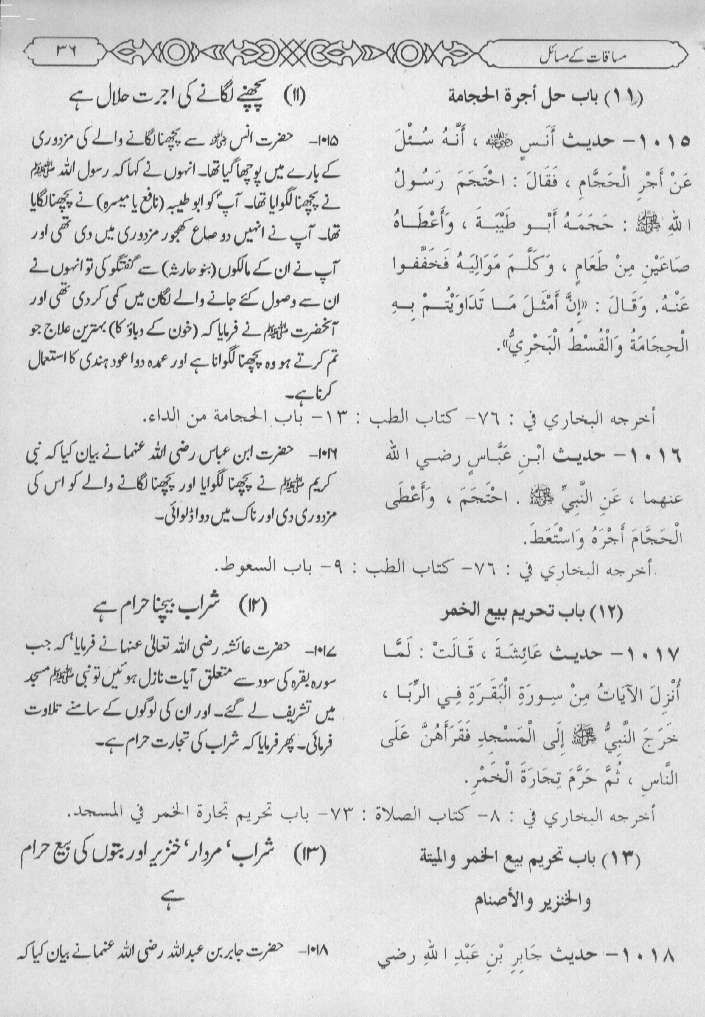 مساقات کے مسائل
۳۶
(۱۱) باب حل أجرة الحجامة
۱۰۱۵- حديث أَنَسٍ ﷺ ، أَنَّهُ سُئِلَ
عَنْ أَجْرِ الْحَجَّامِ ، فَقَالَ : احْتَجَمَ رَسُولُ
اللهِ ﷺ : حَجَمَهُ أَبُو طَيْبَةَ ، وَأَعْطَاهُ
صَاعَيْنِ مِنْ طَعَامٍ ، وَكَلَّمَ مَوَالِيَهُ فَخَفَّفُوا
عَنْهُ. وَقَالَ : «إِنَّ أَمْثَلَ مَا تَدَاوَيْتُمْ بِهِ
الْحِجَامَةُ وَالْقُسْطُ الْبَحْرِيُّ».
(۱۱) پچھنے لگانے کی اجرت حلال ہے
۱۰۱۵- حضرت انس رضی اللہ عنہ سے پچھنا لگانے والے کی مزدوری
کے بارے میں پوچھا گیا تھا۔ انہوں نے کہا کہ رسول اللہ ﷺ
نے پچھنا لگوایا تھا۔ آپ کو ابو طیبہ (نافع یا میسرہ) نے پچھنا لگایا
تھا۔ آپ نے انہیں دو صاع کھجور مزدوری میں دی تھی اور
آپ نے ان کے مالکوں (بنو حارثہ) سے گفتگو کی تو انہوں نے
ان سے وصول کئے جانے والے لگان میں کمی کر دی تھی اور
آنحضرت ﷺ نے فرمایا کہ (خون کے دباؤ کا) بہترین علاج جو
تم کرتے ہو وہ پچھنا لگوانا ہے اور عمدہ دوا عود ہندی کا استعمال
کرنا ہے۔
أخرجه البخاري في : ۷۶- كتاب الطب : ۱۳- باب الحجامة من الداء.
۱۰۱۶- حديث ابْنِ عَبَّاسٍ رضي الله
عنهما ، عَنِ النَّبِيِّ ﷺ . احْتَجَمَ ، وَأَعْطَى
الْحَجَّامَ أَجْرَهُ وَاسْتَعَطَ.
۱۰۱۶- حضرت ابن عباس رضی اللہ عنہما نے بیان کیا کہ نبی
کریم ﷺ نے پچھنا لگوایا اور پچھنا لگانے والے کو اس کی
مزدوری دی اور ناک میں دوا ڈلوائی۔
أخرجه البخاري في : ۷۶- كتاب الطب : ۹- باب السعوط.
(۱۲) باب تحريم بيع الخمر
۱۰۱۷- حديث عَائِشَةَ ، قَالَتْ : لَمَّا
أُنْزِلَ الآيَاتُ مِنْ سِورَةِ الْبَقَرَةِ فِي الرِّبَا ،
خَرَجَ النَّبِيُّ ﷺ إِلَى الْمَسْجِدِ فَقَرَأَهُنَّ عَلَى
النَّاسِ ، ثُمَّ حَرَّمَ تِجَارَةَ الْخَمْرِ.
(۱۲) شراب بیچنا حرام ہے
۱۰۱۷- حضرت عائشہ رضی اللہ تعالیٰ عنہا نے فرمایا' کہ جب
سورہ بقرہ کی سود سے متعلق آیات نازل ہوئیں تو نبی ﷺ مسجد
میں تشریف لے گئے۔ اور ان کی لوگوں کے سامنے تلاوت
فرمائی۔ پھر فرمایا کہ شراب کی تجارت حرام ہے۔
أخرجه البخاري في : ۸- كتاب الصلاة : ۷۳- باب تحريم تجارة الخمر في المسجد.
(۱۳) باب تحريم بيع الخمر والميتة
والخنزير والأصنام
(۱۳) شراب' مردار' خنزیر اور بتوں کی بیع حرام
ہے
۱۰۱۸- حديث جَابِرِ بْنِ عَبْدِ اللهِ رضي
۱۰۱۸- حضرت جابر بن عبداللہ رضی اللہ عنہما نے بیان کیا کہ